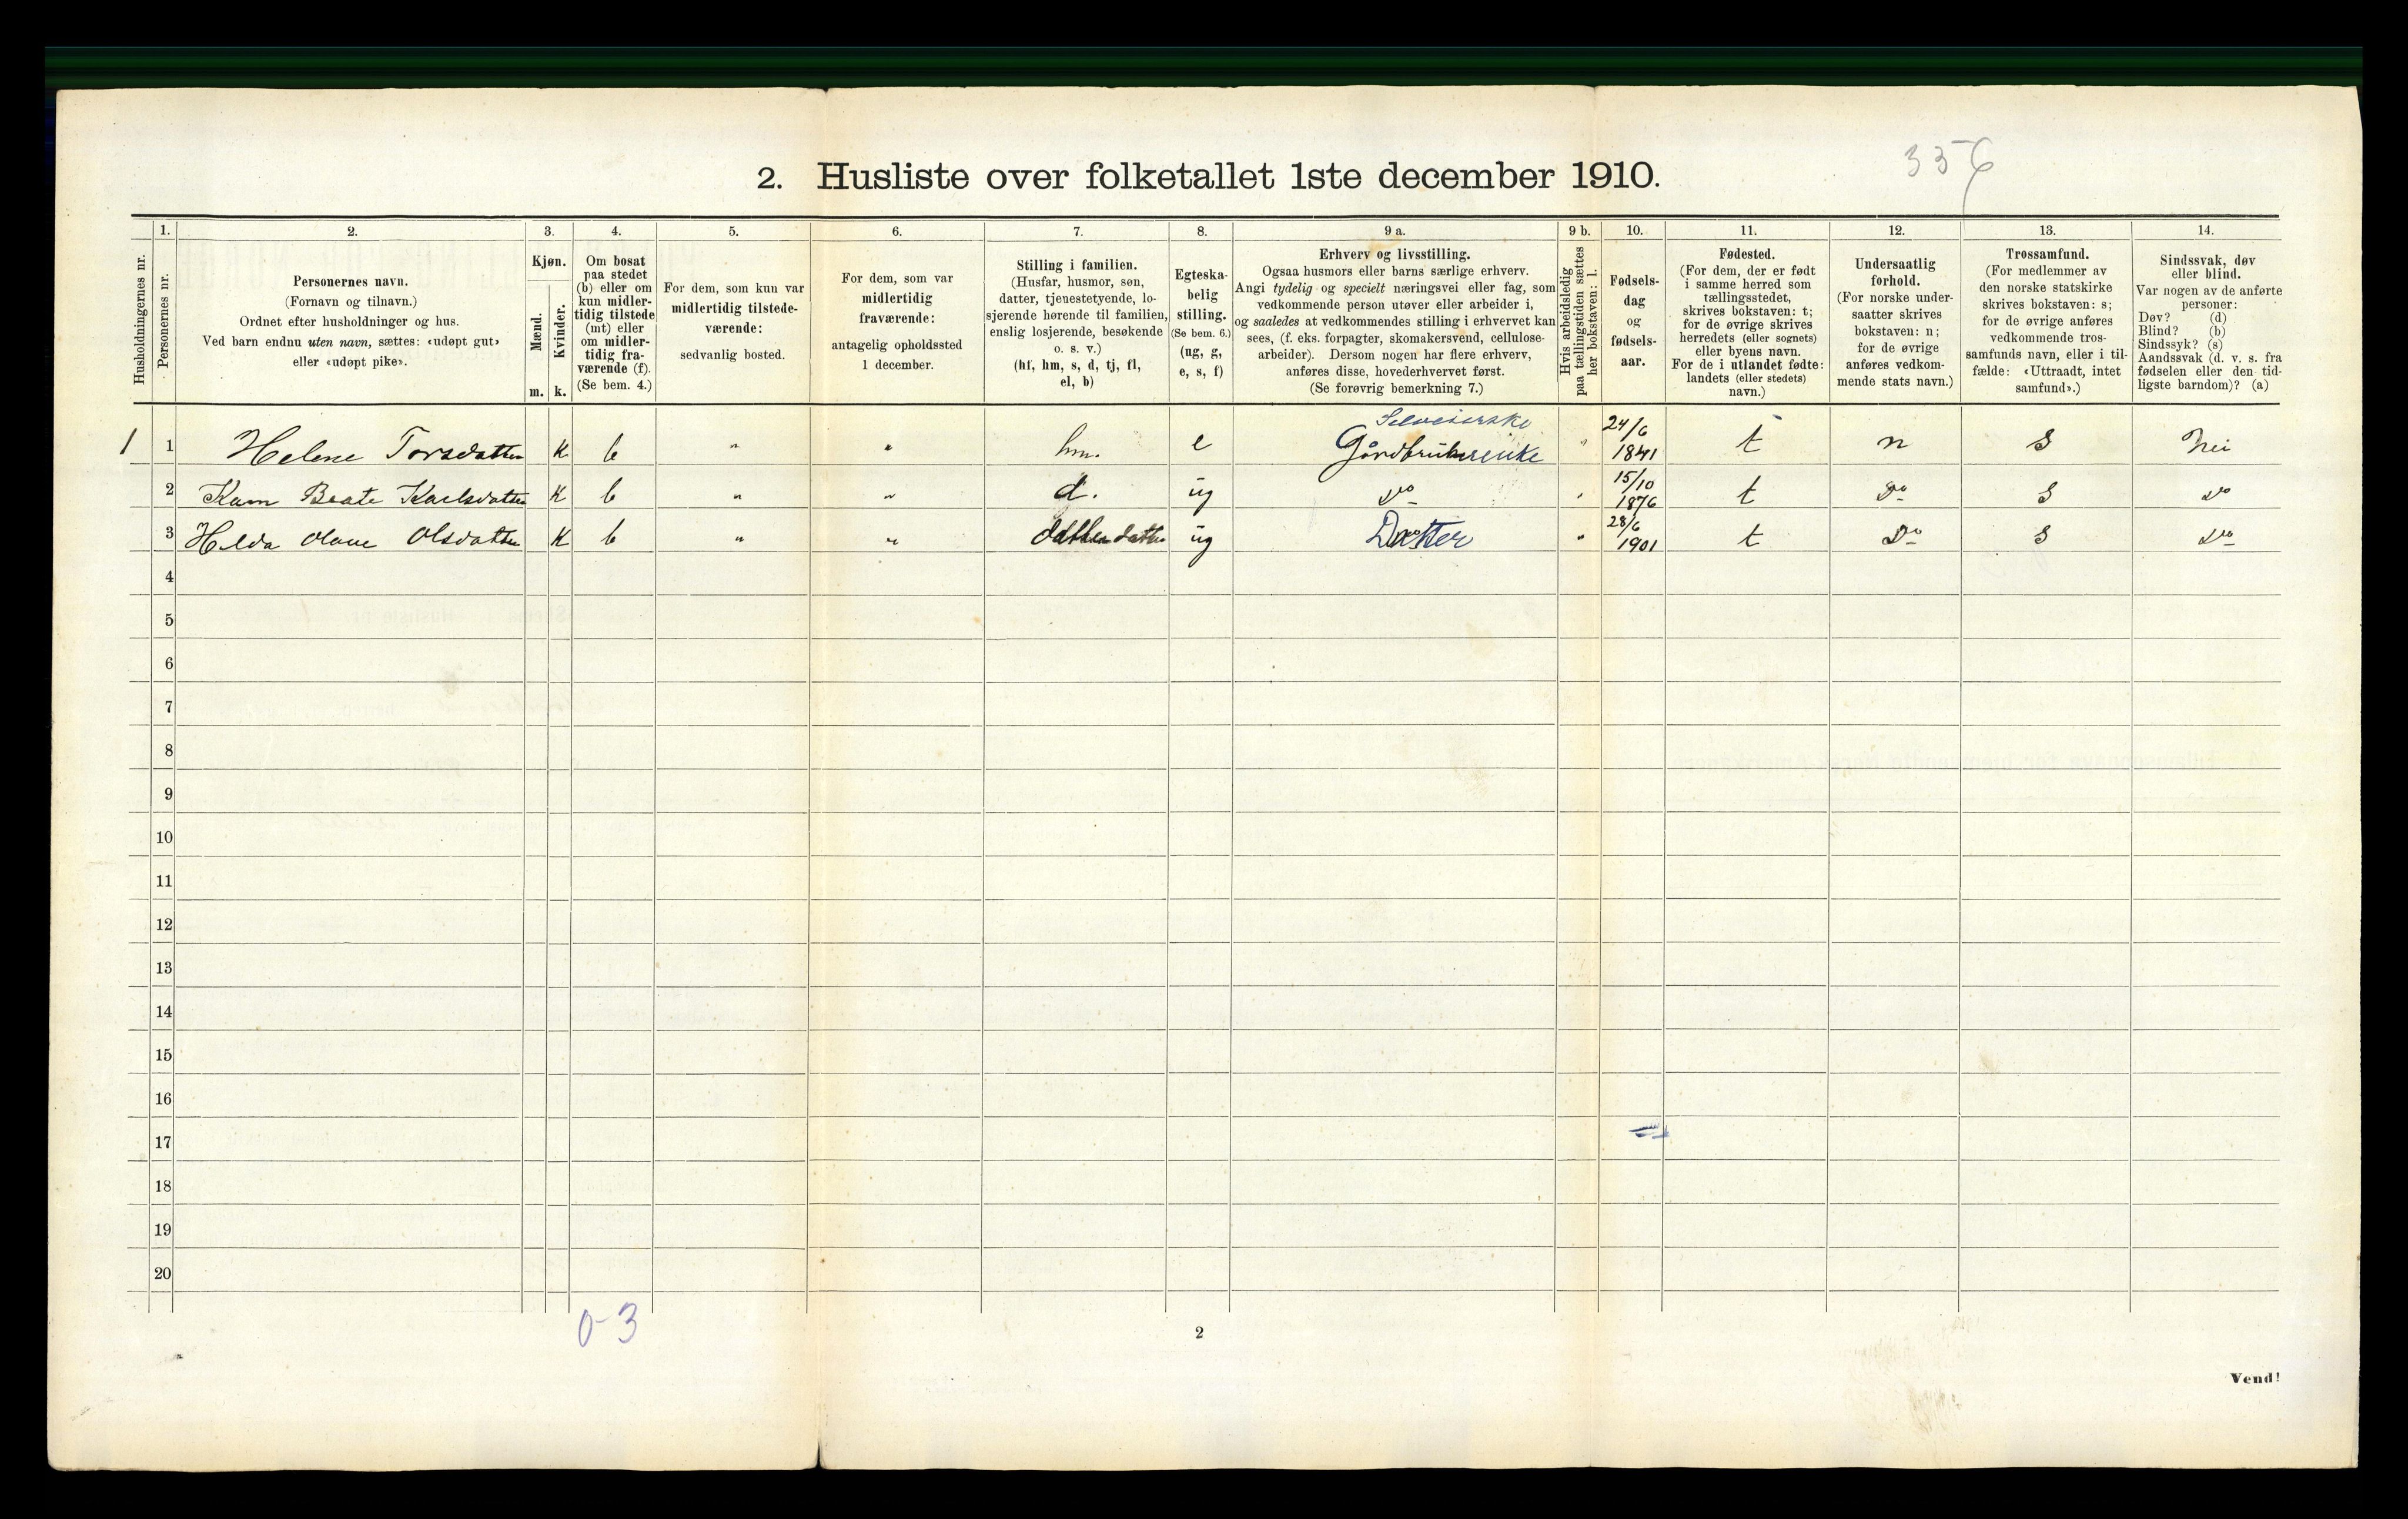 356
2. Husliste over folketallet 1ste december 1910.
Husholdningernes nr.
1.
Personernes nr.
2.
Personernes navn.
(Fornavn og tilnavn.)
Ordnet efter husholdninger og hus.
Ved barn endnu uten navn, sættes: «udøpt gut»
eller «udøpt pike».
3.
Kjøn.
Mænd.
Kvinder.
m. k.
4.
Om bosat
paa stedet
(b) eller om
kun midler-
tidig tilstede
(mt) eller
om midler-
tidig fra-
værende (f).
(Se bem. 4.)
5.
For dem, som kun var
midlertidig tilstede-
værende:
sedvanlig bosted.
6.
For dem, som var
midlertidig
fraværende:
antagelig opholdssted
1 december.
7.
Stilling i familien.
(Husfar, husmor, søn,
datter, tjenestetyende, lo-
sjerende hørende til familien,
enslig losjerende, besøkende
o. s. v.)
(hf, hm, s, d, tj, fl,
el, b)
8.
Egteska-
belig
stilling.
(Se bem. 6.)
(ug, g,
e, s, f)
9 a.
Erhverv og livsstilling.
Ogsaa husmors eller barns særlige erhverv.
Angi tydelig og specielt næringsvei eller fag, som
vedkommende person utøver eller arbeider i,
og saaledes at vedkommendes stilling i erhvervet kan
sees, (f. eks. forpagter, skomakersvend, cellulose-
arbeider). Dersom nogen har flere erhverv,
anføres disse, hovederhvervet først.
(Se forøvrig bemerkning 7.)
9 b.
Hvis arbeidsledig
paa tællingstiden sættes
her bokstaven: l.
10.
Fødsels-
dag
og
fødsels-
aar.
11.
Fødested.
(For dem, der er født
i samme herred som
tællingsstedet,
skrives bokstaven: t;
for de øvrige skrives
herredets (eller sognets)
eller byens navn.
For de i utlandet fødte:
landets (eller stedets)
navn.)
12.
Undersaatlig
forhold.
(For norske under-
saatter skrives
bokstaven: n;
for de øvrige
anføres vedkom-
mende stats navn.)
13.
Trossamfund.
(For medlemmer av
den norske statskirke
skrives bokstaven: s;
for de øvrige anføres
vedkommende tros-
samfunds navn, eller i til-
fælde: «Uttraadt, intet
samfund».)
14.
Sindssvak, døv
eller blind.
Var nogen av de anførte
personer:
Døv? (d)
Blind? (b)
Sindssyk? (s)
Aandssvak (d. v. s. fra
fødselen eller den tid-
ligste barndom)? (a)
Selveierske
1 1 Helene Torsdatter K b " " hm. e Gårdbruker enke " 24/6 1841 t n S Nei
2 Karn Beate Karlsdatter K b " " d. ug Do " 15/10 1876 t Do S Do
3 Helda Olave Olsdatter K b " " datter datter ug Datter " 28/6 1901 t Do S Do
4
5
6
7
8
9
10
11
12
13
14
15
16
17
18
19
20
0-3
2
Vend!